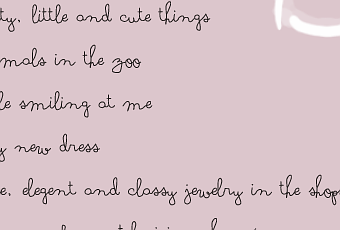 ty, little and cute things
mals in the zoo
le smiling at me
y new dress
e, elegent and classy jewelry in the shop